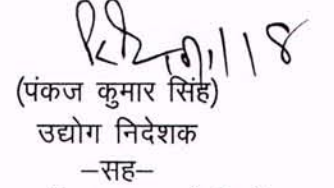 (पंकज कुमार सिंह)
उद्योग निदेशक
–सह–